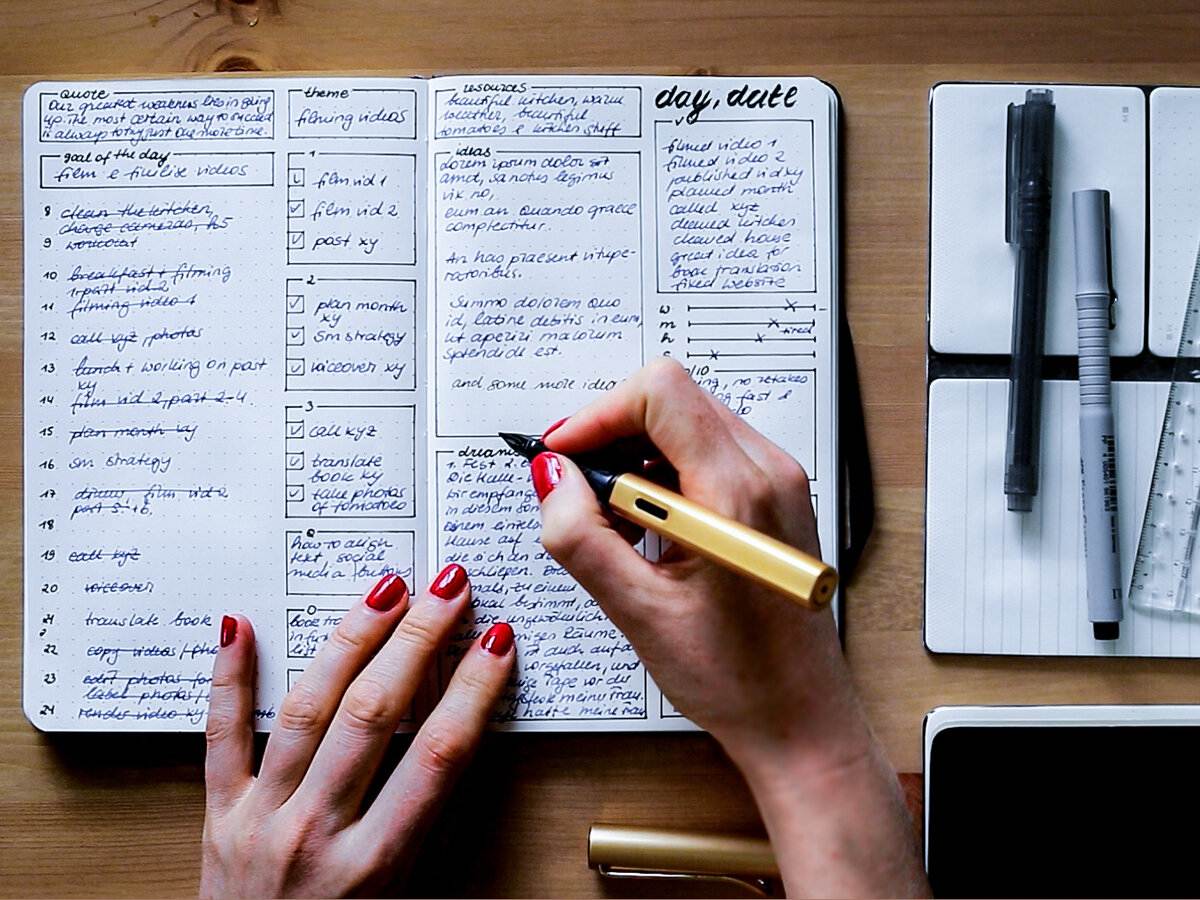 quote
Our greatest weakness lies in giving
up. The most certain way to succeed
is always to try just one more time.
goal of the day
film e finilise videos
8 clean the kitchen,
charge cameras,
9 workout
10 breakfast + filming
1 part vid 2
11 filming video 1
12 call xyz, photos
13 lunch + working on post
xy
14 film vid 2, part 2-4
15 plan month xy
16 sm strategy
17 film vid 2
part 5+6
18
19 call xyz
20 voiceover
21 translate book
22 copy videos/pho
23 edit photos for
label photos/
24 render video xy
theme
filming videos
1
film vid 1
film vid 2
post xy
2
plan month
xy
sm strategy
voiceover xy
3
call xyz
translate
book xy
take photos
of tomatoes
Q
how to align
text social
media buttons
book tra
list
resources
beautiful kitchen, warm
weather, beautiful
tomatoes e kitchen stuff
ideas
dorem ipsum dolor sit
amd, sanotus legimus
vix no,
eum an quando graece
complectitur.
An has praesent vitupe-
ratoribus.
Summo dolorem quo
id, latine debitis in eum,
ut aperiri malorum
splendide est.
and some more idea
dreams
1. Fest
Die Halle
wir empfang
in diesem
einem einzel
Hause auf
die sich an d
schliepen.
mals, zu einem
okal bestimmt, da
die ungewöhnlich
Räume.
auch auf d
vorgefallen, und
ige Tage vor de
meiner Frau.
hatte meine Frau
day, date
filmed video 1
filmed video 2
published vid xy
planned month
called xyz
cleaned kitchen
cleaned house
great idea for
book translation
fixed website
w
m
tired
h
/10
ing, no retakes
ng fast &